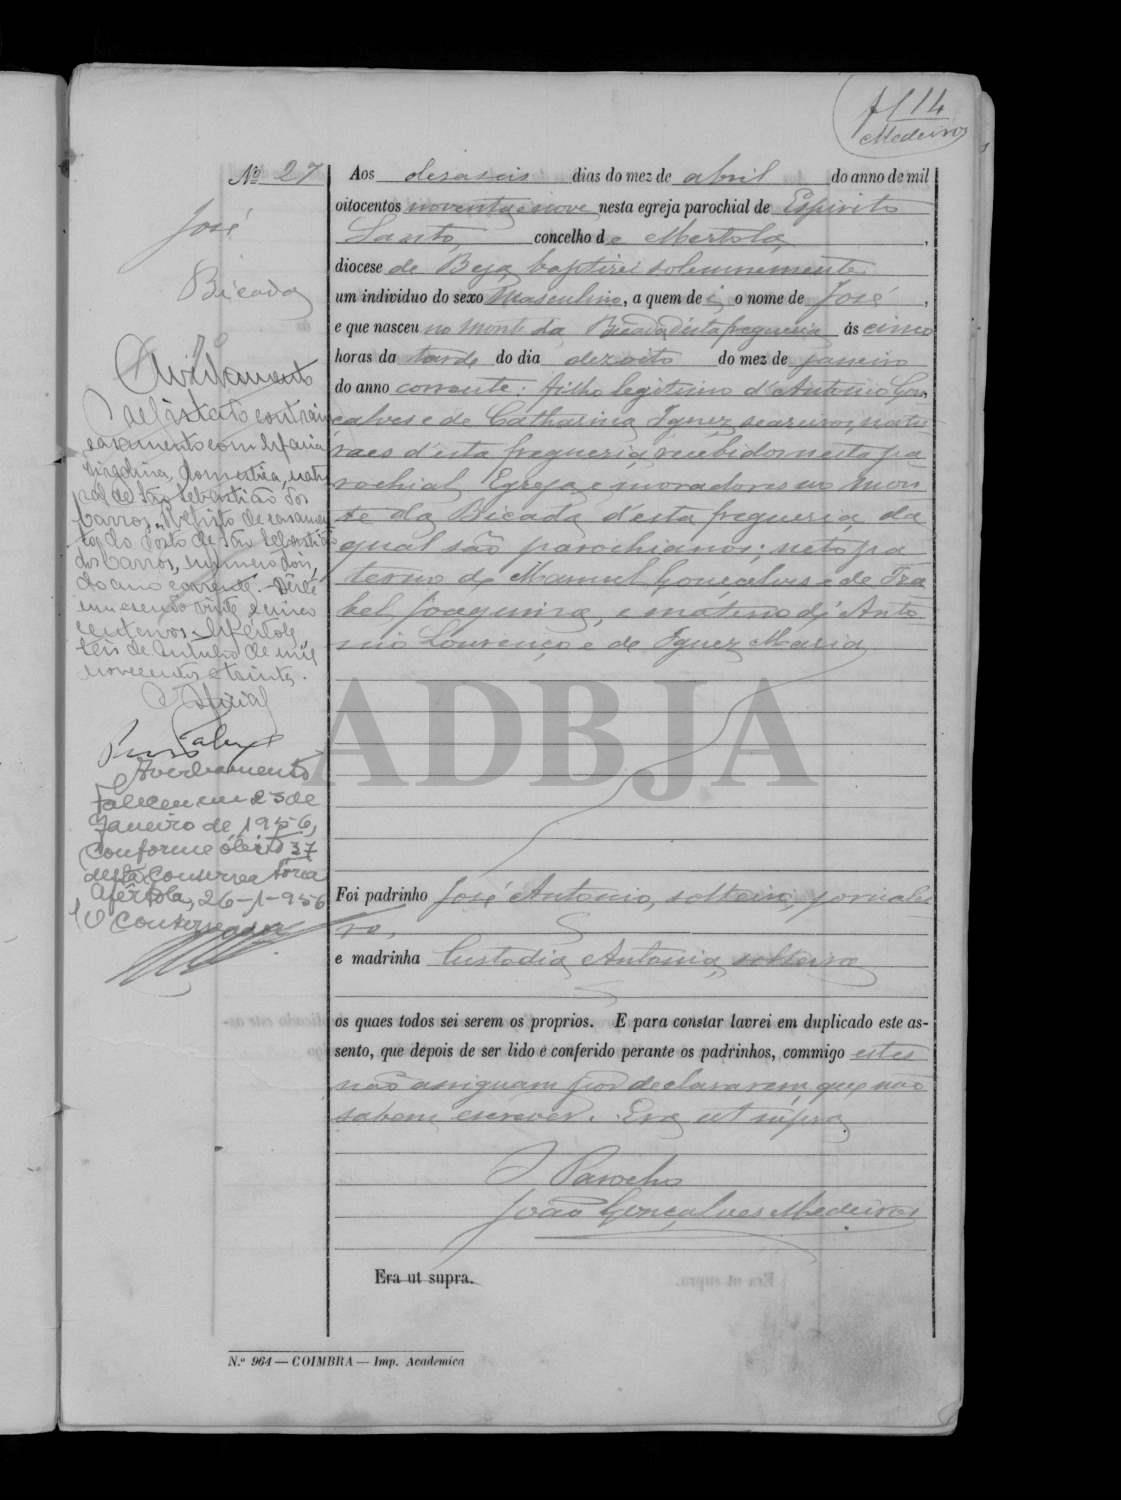 fl 14
Medeiros
Nº 27
José
Bicada
Aos desaseis dias do mez de abril do anno de mil
oitocentos noventa e nove nesta egreja parochial de Espirito
Santo, concelho de Mertola,
diocese de Beja baptizei solemnemente
um individuo do sexo Masculino, a quem dei o nome de José,
e que nasceu no Monte da Bicada d'esta freguezia ás cinco
horas da tarde do dia dezoito do mez de janeiro
do anno corrente: filho legitimo d'Antonio Gon
çalves e de Catharina Ignez, seareiros, natu
raes d'esta freguezia, recebidos nesta pa
rochial Egreja e moradores no Mon
te da Bicada d'esta freguezia da
qual são parochianos; neto pa
terno de Manuel Gonçalves e de Iza
bel Joaquina, e materno d'Anto
nio Lourenço e de Ignez Maria
Foi padrinho José Antonio, solteiro, jornalei
ro,
e madrinha Custodia Antonia, solteira
os quaes todos sei serem os proprios. E para constar lavrei em duplicado este as-
sento, que depois de ser lido e conferido perante os padrinhos, commigo estes
não assignam por declararem que não
sabem escrever. Era ut supra
O Parocho
João Gonçalves Medeiros
Era ut supra.
Nº 1
Averbamento
O registado contraiu
casamento com Maria
domestica, natu
ral de São Sebastião dos
Carros. Registo de casamen
to do Posto de São Sebastião
dos Carros, numero dois,
do ano corrente.
vinte e cinco
centavos. Mertola
seis de outubro de mil
novecentos e trinta.
O Oficial
Averbamento
Faleceu em 25 de
Janeiro de 1956,
Conforme óbito 37
desta Conservatória
Mértola, 26-1-956
O Conservador
ADBJA
N.º 964 — COIMBRA — Imp. Academica